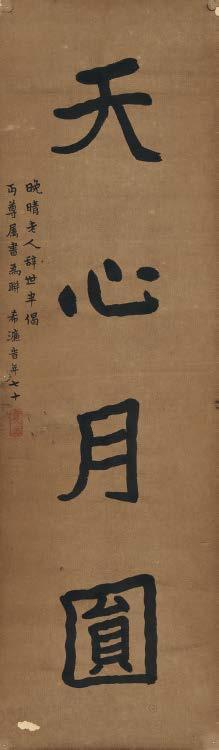 天心月圓
晚晴老人辞世半偈
丏尊属書為聯 希濂育年七十